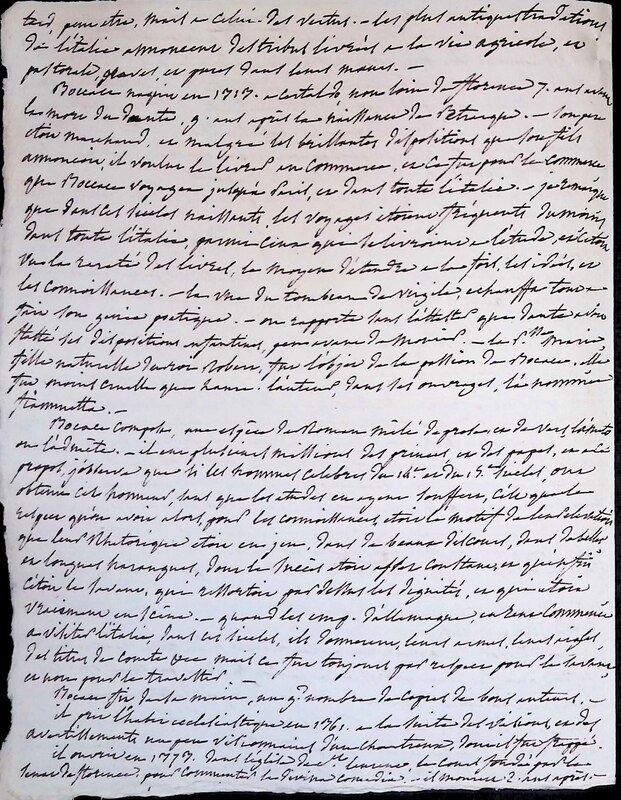 tard, peut etre, mais a celui des vertus. - les plus antiques traditions
de l'italie annoncent des tribus livrées a la vie agricole, et
pastorale, graves, et pures dans leurs mœurs. -
Bocace naquit en 1313. a certaldo non loin de florence 7. ans avant
la mort du dante, 9. ans après la naissance de Petrarque. - son pere
étoit marchand, et malgré les brillantes dispositions que son fils
annoncoit, il voulut le livrer au commerce, et ce fut pour le commerce
que Bocace voyagea jusqu'à Paris, et dans toute l'italie. - je remarque
que dans ces siecles naissants, les voyages etoient fréquents du moins
dans toute l'italie, parmi ceux qui se livroient a l'étude, et c'étoit
vu la rareté des livres, le moyen d'étendre a la fois, les idées, et
les connoissances. - la vue du tombeau de virgile, echauffa tout a
fait son genie poetique. - on rapporte sans l'attester que dante avoit
flatté ses dispositions enfantines, peu avant de mourir. - la Marie,
fille naturelle du roi Robert, fut l'objet de la passion de Bocace. elle
fut moins cruelle que Laure. l'auteur, dans ses ouvrages, l'a nommée
fiammetta. -
Bocace composa, une espèce de Roman mêlé de prose, et de vers,
ou l'admète. - il eut plusieurs missions des princes, et des papes, et a ce
propos, j'observe que si les hommes celebres du 14e et du 15e siecles, ont
obtenu cet honneur, sans que les etudes en ayent souffert, c'est que le
respect qu'on avoit alors, pour les connoissances, etoit le motif de leur élévation
que leur Rhetorique etoit en jeu, dans de beaux discours, dans de belles
et longues harangues, dont le succès etoit assez constant, et qu'enfin
c'étoit le savant, qui ressortoit par dessus les dignités, et qui étoit
vraiment en scène. - quand les emp. d'allemagne,
a visiter l'italie, dans ces siecles, ils donnerent, leurs armes, leurs aigles,
des titres de comte &c mais ce fut toujours par respect pour le savant,
et non pour le travesti. -
Bocace fit de sa main, un gd nombre de copies de bons auteurs. -
il prit l'habit ecclesiastique en 1361. a la suite des visions, et des
avertissements un peu visionnaires d'un chartreux, dont il fut frappé.
il ouvrit en 1373. dans l'église de St laurent, le cours fondé par le
senat de florence, pour commenter la divina comedia. - il mourut 2. ans après. -